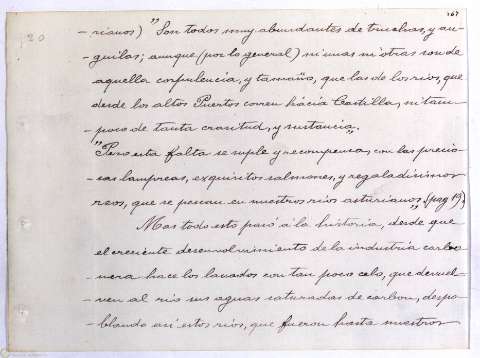 167
120
-rianos) "Son todos muy abundantes de truchas, y an-
guilas; aunque (por lo general) ni unas ni otras son de
aquella corpulencia, y tamaño, que las de los ríos, que
desde los altos Puertos corren hácia Castilla, ni tam-
-poco de tanta crasitud, y sustancia.
"Pero esta falta se suple y recompensa, con las precio-
-sas lampreas, exquisitos salmones, y regaladísimos
reos, que se pescan en nuestros ríos asturianos" (pag 19)
Mas todo esto pasó á la historia, desde que
el creciente desenvolvimiento de la industria carbo-
-nera hace los lavados con tan poco celo, que devuel-
-ven al río sus aguas saturadas de carbon, despo-
-blando así estos ríos, que fueron hasta nuestros